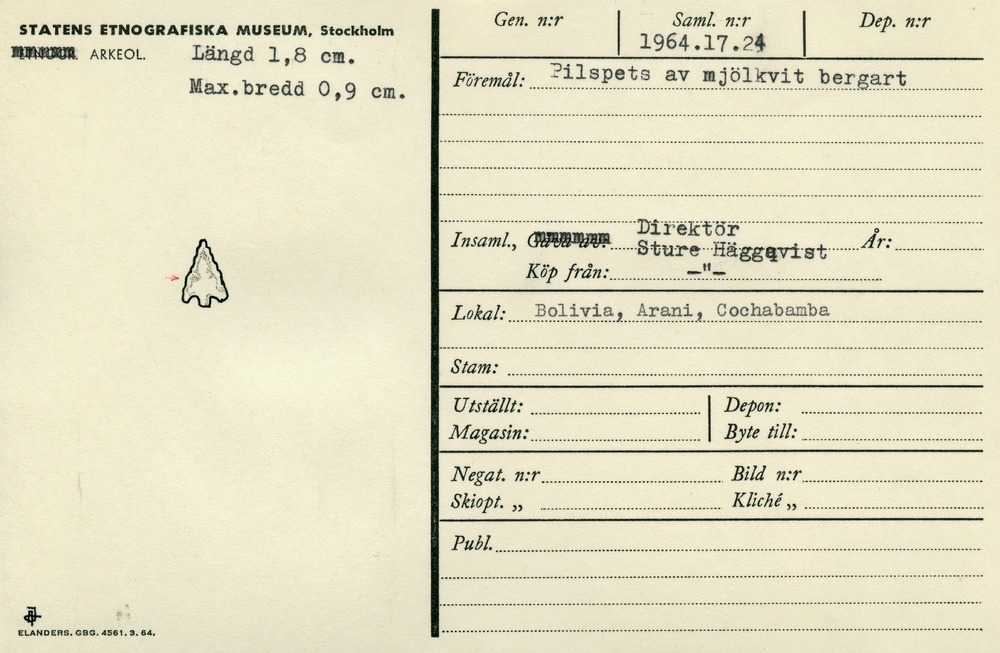 STATENS ETNOGRAFISKA MUSEUM, Stockholm
ETNOGR. ARKEOL.
Längd 1,8 cm.
Max.bredd 0,9 cm.
ELANDERS. GBG. 4561. 3. 64.
Gen. n:r Saml. n:r Dep. n:r
1964.17.24
Föremål: Pilspets av mjölkvit bergart
Direktör
Insaml., Gåva av: Sture Häggqvist År:
Köp från: —"—
Lokal: Bolivia, Arani, Cochabamba
Stam:
Utställt: Depon:
Magasin: Byte till:
Negat. n:r Bild n:r
Skiopt. „ Kliché „
Publ.